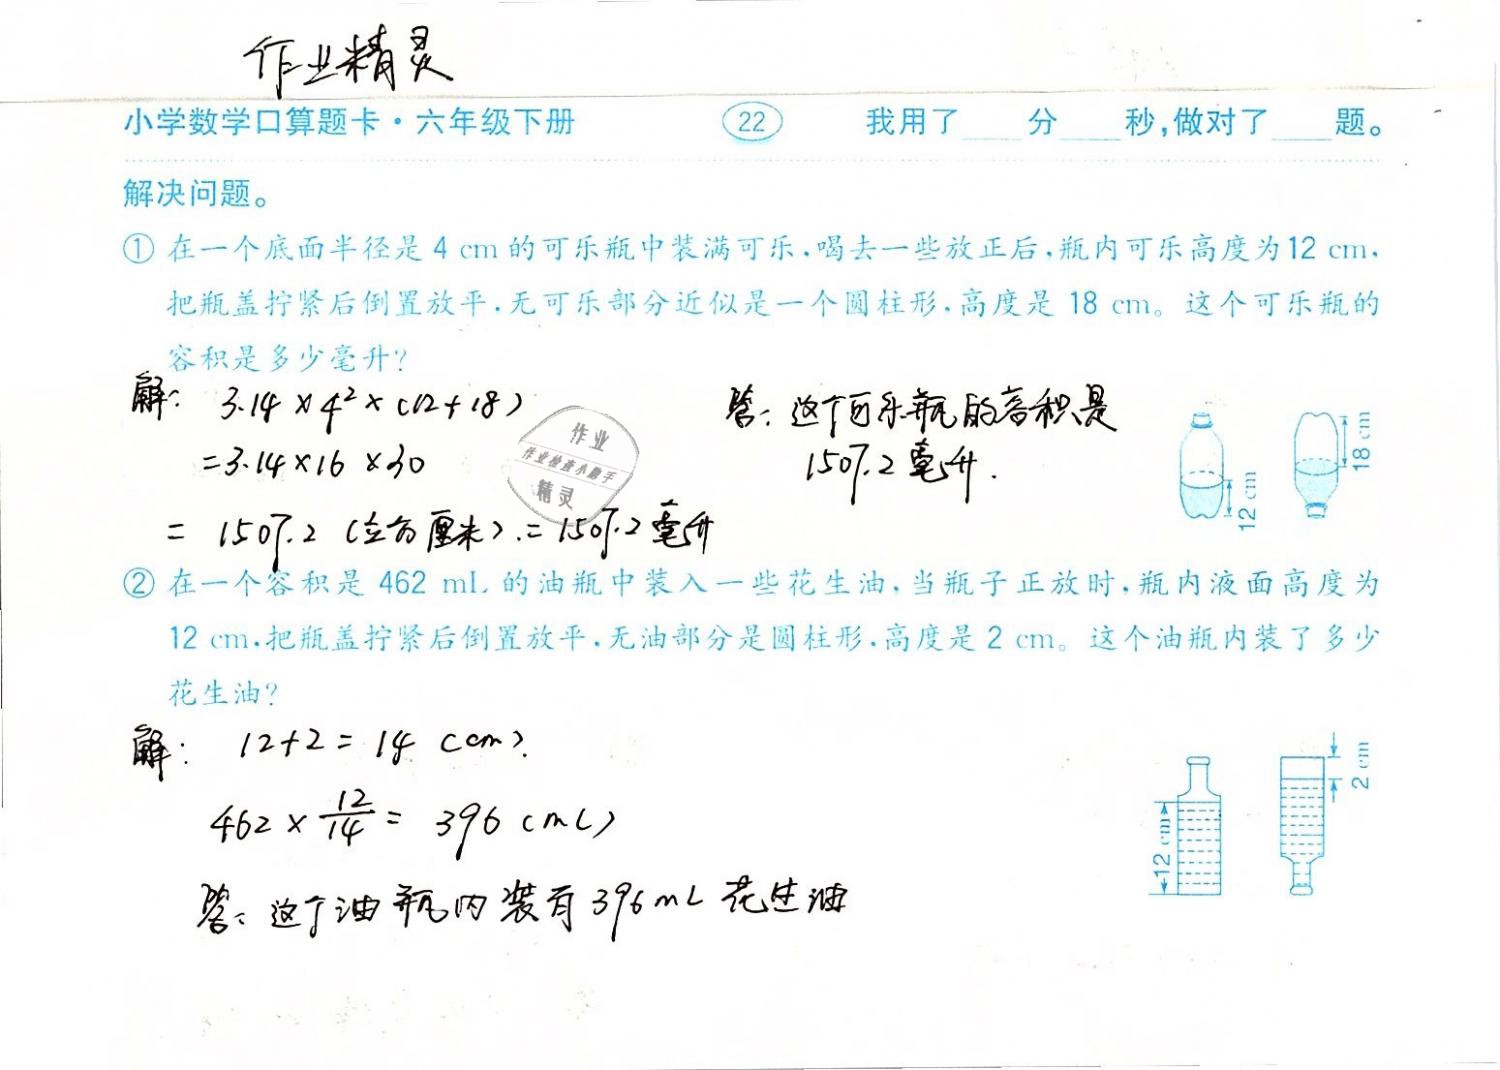 作业精灵
小学数学口算题卡·六年级下册 22 我用了____分____秒,做对了____题。
解决问题。
① 在一个底面半径是 4 cm 的可乐瓶中装满可乐,喝去一些放正后,瓶内可乐高度为12 cm,
把瓶盖拧紧后倒置放平,无可乐部分近似是一个圆柱形,高度是 18 cm。这个可乐瓶的
容积是多少毫升?
解: 3.14×4²×(12+18)
=3.14×16×30
= 1507.2 (立方厘米).=1507.2毫升
答:这个可乐瓶的容积是
1507.2毫升.
12 cm
18 cm
作业
作业检查小助手
精灵
② 在一个容积是 462 mL 的油瓶中装入一些花生油,当瓶子正放时,瓶内液面高度为
12 cm,把瓶盖拧紧后倒置放平,无油部分是圆柱形,高度是 2 cm。这个油瓶内装了多少
花生油?
解: 12+2=14 (cm).
462×12/14= 396 (mL)
答:这个油瓶内装有396mL花生油
12 cm
2 cm